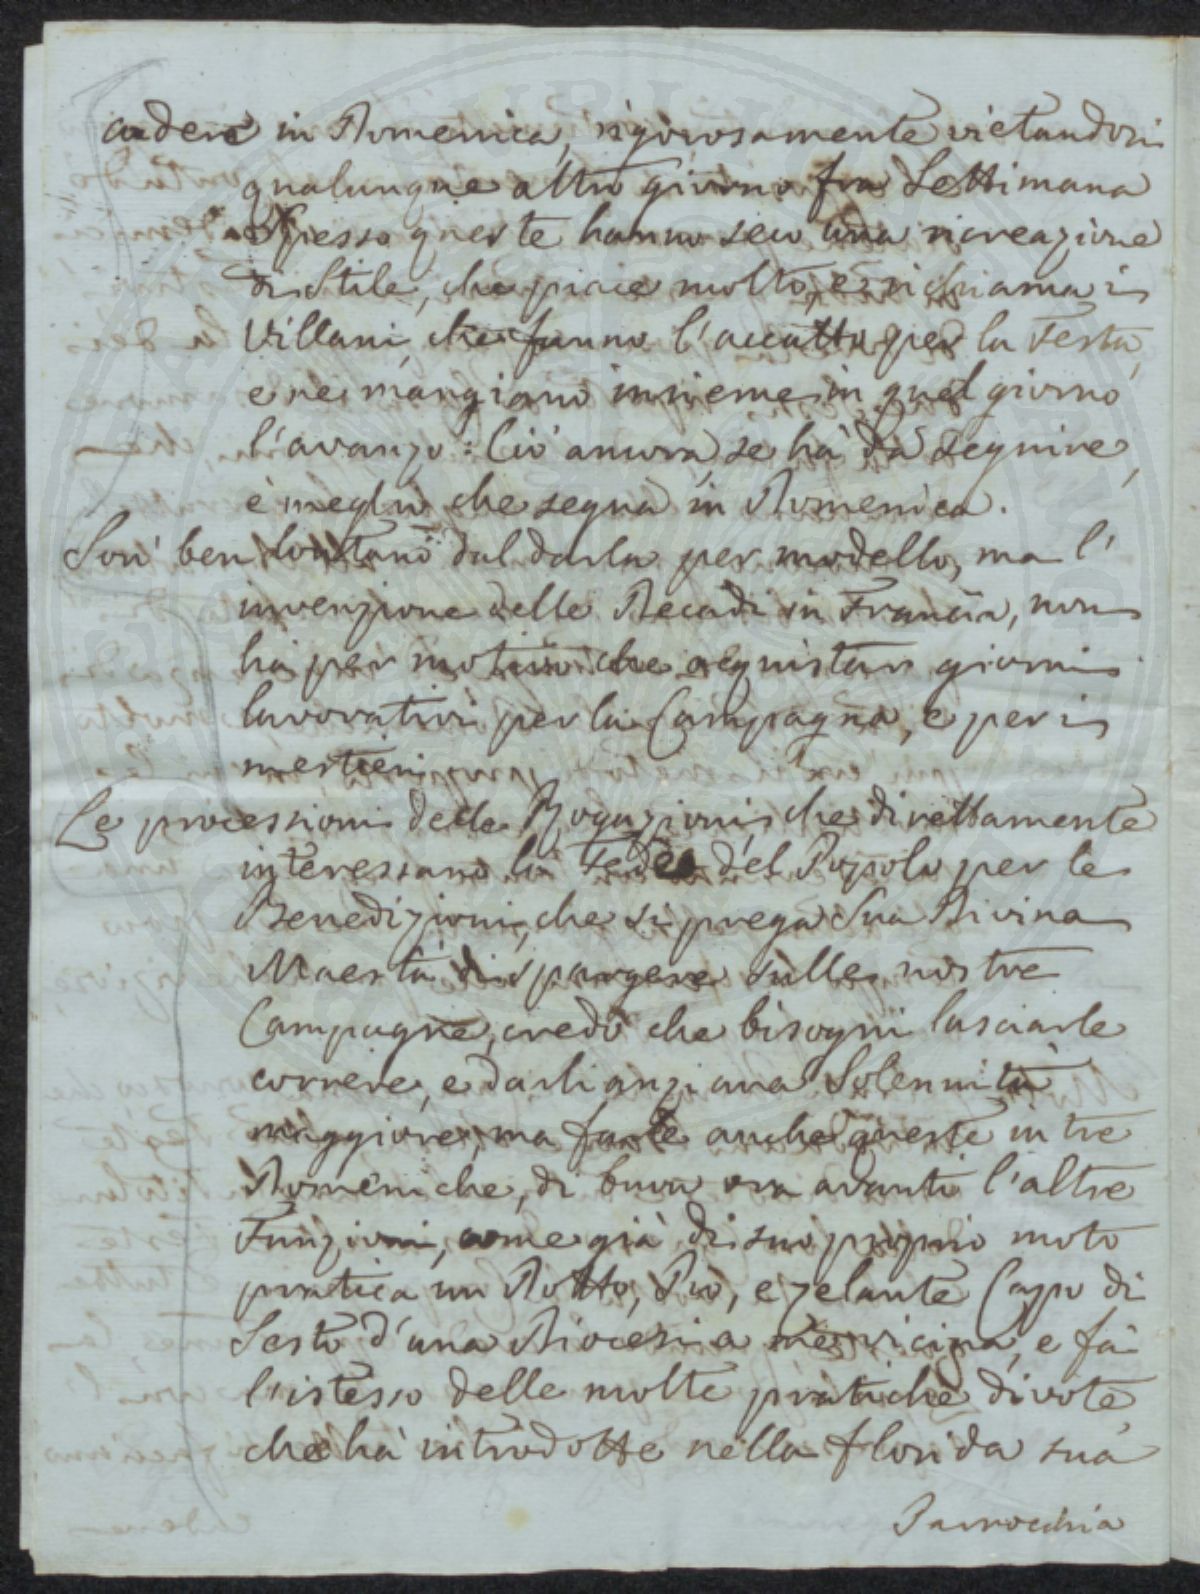 cadere in Domenica, rigorosamente vietandosi
qualunque altro giorno fra Settimana
Spesso queste hanno seco una ricreazione
di Stile, che piace molto, e si chiama i
Villani, che fanno l'accatto per la Festa,
e ne mangiano insieme in quel giorno
l'avanzo: Ciò ancora se hà da seguire,
è meglio che segua in Domenica.
Son' ben lontano dal darla per modello, ma l'
invenzione delle Decadi in Francia, non
hà per motivo che acquistar giorni
lavorativi per la Campagna, e per i
mestieri.
Le processioni delle Rogazioni, che direttamente
interessano la Fede del Popolo per le
Benedizioni, che si prega Sua Divina
Maestà di spargere sulle nostre
Campagne, credo che bisogni lasciarle
correre, e darli anzi una Solennità
maggiore, ma farle anche queste in tre
Domeniche, di buon ora avanti l'altre
Funzioni, come già di suo proprio moto
pratica un Dotto, Pio, e zelante Capo di
Sesto d'una Diocesi a me vicina, e fà
l'istesso delle molte pratiche divote,
che hà introdotte nella florida sua
Parrocchia